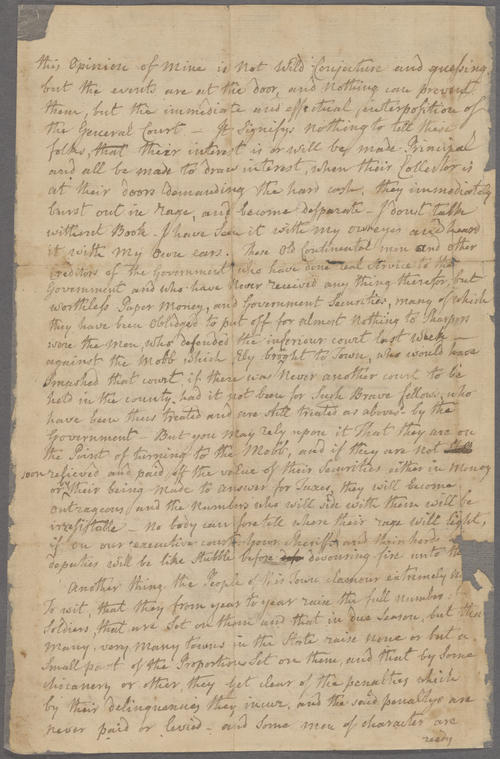 this Opinion of Mine is Not Wild Conjecture and guessing
but the events are at the door, and nothing can prevent
them, but the immediate and effectual interposition of
the General Court – It Signifys nothing to tell these
folks, that their interest is or will be made Principal
and all be made to draw interest, when their Collector is
at their doors Demanding the hard cash, they immediately
burst out in rage, and become desparate – I dont talk
without Book – I have seen it with my own eyes and heard
it with my own ears. These Old Continental men and other
Creditors of the Government who have done real Service to the
Government and who have Never received any thing therefor, but
worthless Paper Money, and Government Securities, many of which
they have been Obliged to put off for almost Nothing to Sharpers
were the Men, who defended the inferiour court last week –
against the Mobb which Ely brought to Town, who would have
Smashed that court, if there was Never another court to be
held in the county, had it not been for Such Brave fellows, who
have been thus treated and are still treated as above – by the
Government – But you May rely upon it That they are on
the Point of turning to the Mobb, and if they are not
soon relieved and paid off the value of their Securities either in Money
or their being made to answer for Taxes, they will become
outrageous, and the Numbers who will side with them will be
irresistable – No body can foretell where their rage will light,
if on our executive courts, your Sheriffs and their
deputies will be like Stubble before devouring fire unto
Another thing the People of this Town clamour extremely
To wit, that they from year to year raise the full number
Soldiers, that are Set on them and that in due Season, but that
Many, very many towns in the State raise none or but a
Small part of the Proportion Set on them, and that by Some
chicanery or other, they get clear of the penalties which
by their delinquences they incur, and the said penaltys are
never paid or levied – and Some men of character are
ready